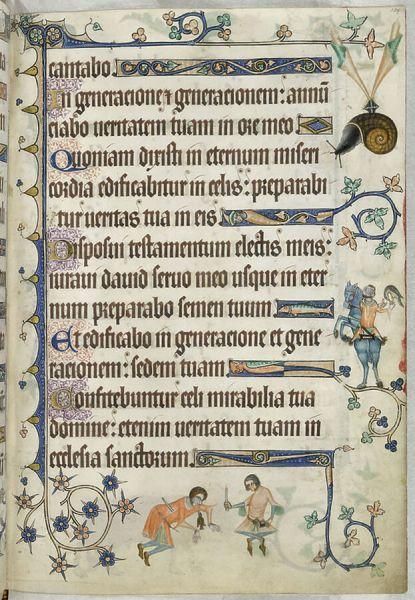 cantabo.
In generacione ⁊ generacionem: annū
ciabo ueritatem tuam in ore meo
Quoniam dixisti in eternum miseri
cordia edificabitur in celis: preparabi
tur ueritas tua in eis
Disposui testamentum electis meis:
iuraui dauid seruo meo usque in eter
num preparabo semen tuum
Et edificabo in generacione et gene
racionem: sedem tuam
Confitebuntur celi mirabilia tua
domine: etenim ueritatem tuam in
ecclesia sanctorum.